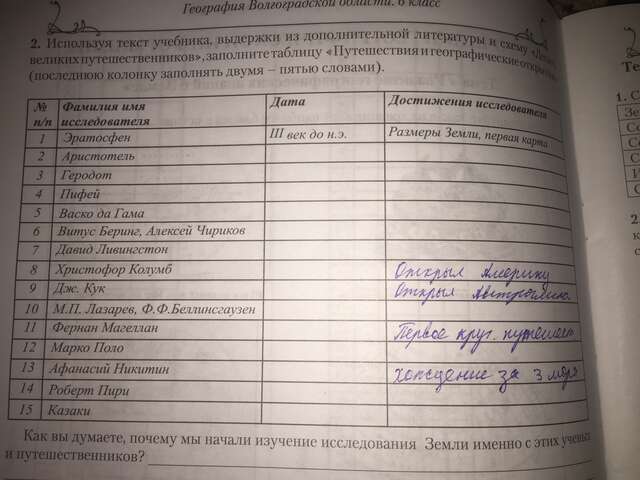 География Волгоградской области. 6 класс
2. Используя текст учебника, выдержки из дополнительной литературы и схему
великих путешественников», заполните таблицу «Путешествия и географические
(последнюю колонку заполнять двумя – пятью словами).
№ п/п Фамилия имя исследователя Дата Достижения исследователя
1 Эратосфен III век до н.э. Размеры Земли, первая карта
2 Аристотель
3 Геродот
4 Пифей
5 Васко да Гама
6 Витус Беринг, Алексей Чириков
7 Давид Ливингстон
8 Христофор Колумб Открыл Америку
9 Дж. Кук Открыл
10 М.П. Лазарев, Ф.Ф.Беллинсгаузен
11 Фернан Магеллан Первое круг.
12 Марко Поло
13 Афанасий Никитин Хождение за 3 моря
14 Роберт Пири
15 Казаки
Как вы думаете, почему мы начали изучение исследования Земли именно с этих ученых
и путешественников?
1. С
2.